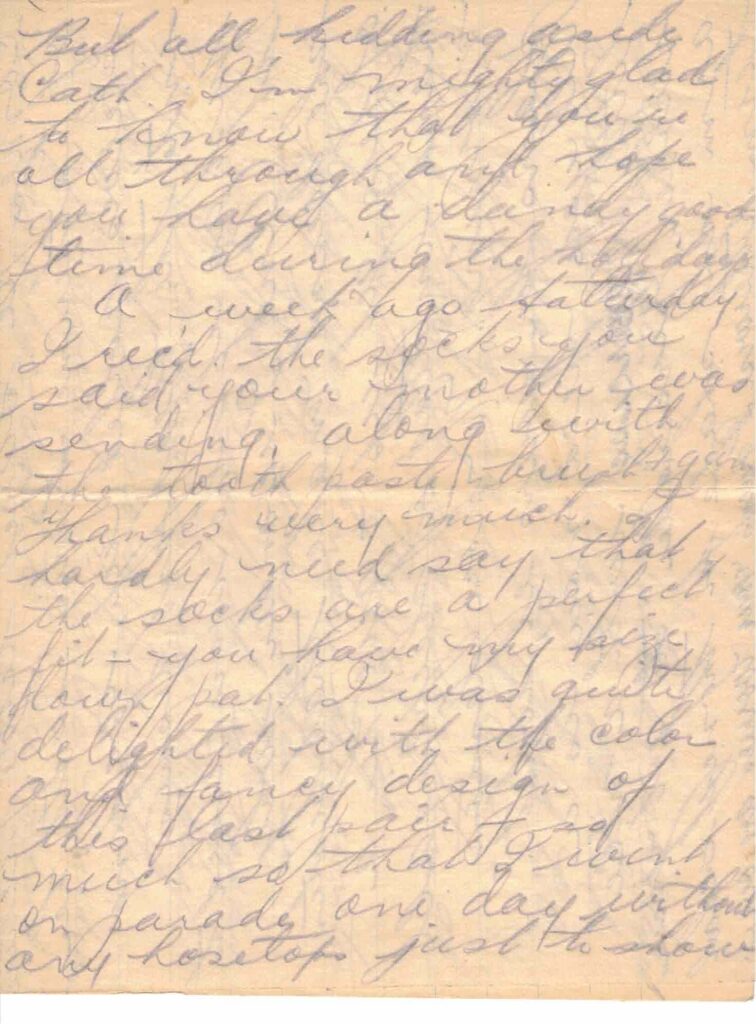 But all kidding aside
Cath. I'm mighty glad
to know that you're
all through and hope
you have a dandy good
time during the holidays
A week ago Saturday
I rec'd. the socks you
said your mother was
sending, along with
the tooth paste, brush & gum
Thanks very much. I
hardly need say that
the socks are a perfect
fit - you have my size
down pat. I was quite
delighted with the color
and fancy design of
this last pair - so
much so that I went
on parade one day without
any hosetops just to show